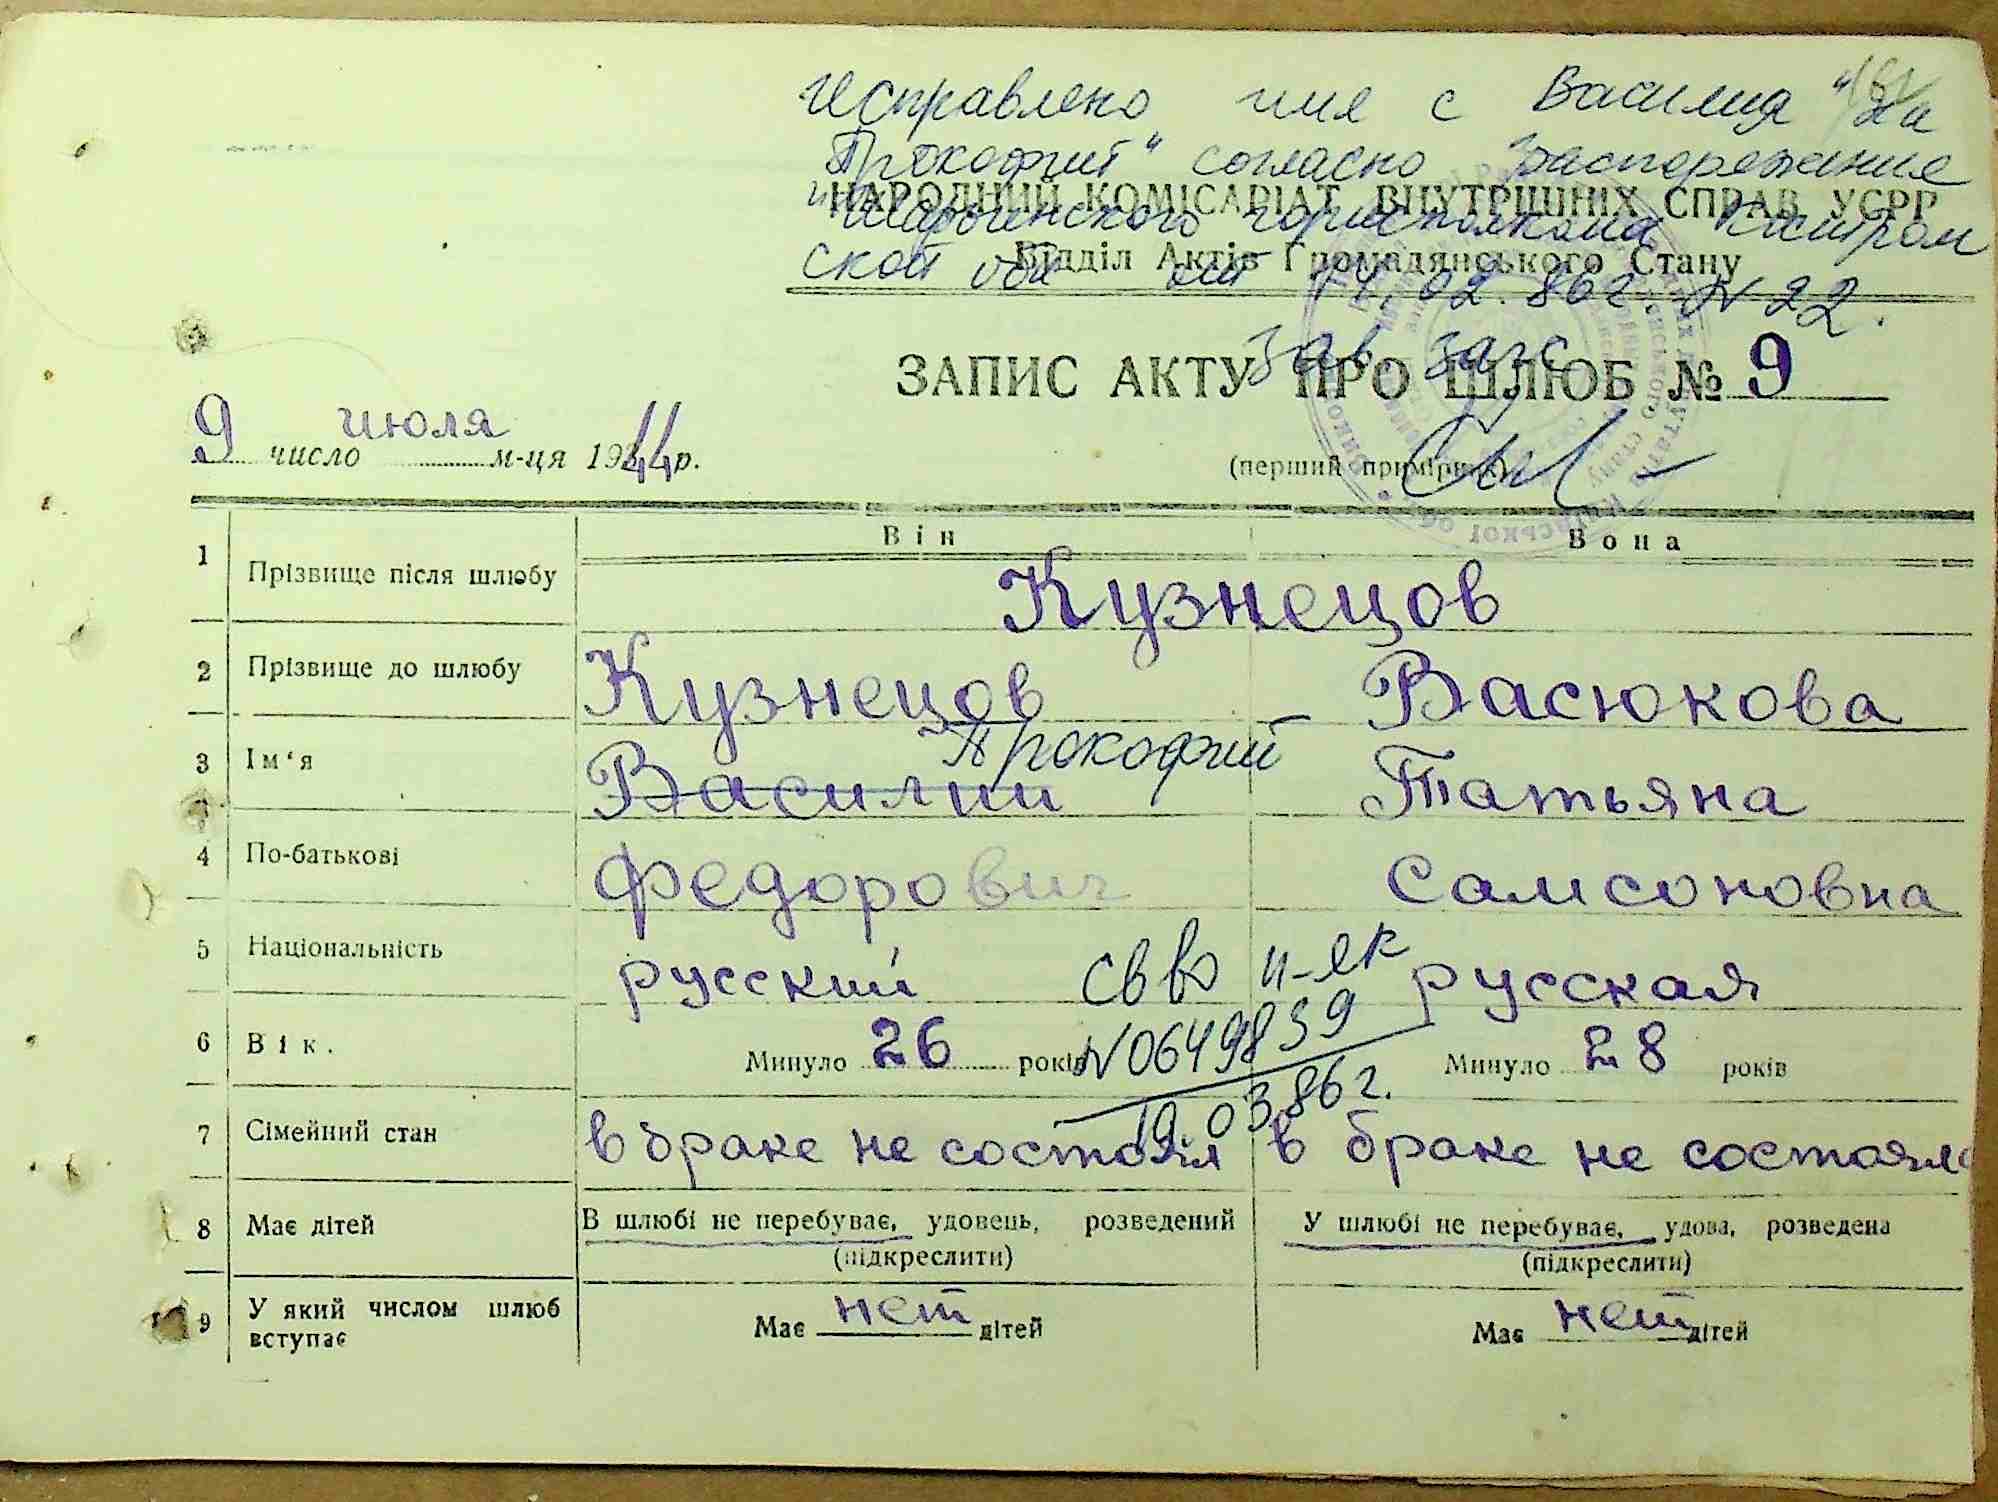 Исправлено имя с Василия на
"Прокофий" согласно распоряжение
НАРОДНИЙ КОМІСАРІАТ ВНУТРІШНІХ СПРАВ УСРР
горисполкома Костром
ской обл от 14.02.86г. N 22.
Відділ Актів Громадянського Стану
Зав загс
ЗАПИС АКТУ ПРО ШЛЮБ № 9
9 число июля м-ця 1944р.
(перший примірник)
Він Вона
1 Прізвище після шлюбу Кузнецов
2 Прізвище до шлюбу Кузнецов – Васюкова
Прокофий
3 Ім'я Василий Татьяна
4 По-батькові Федорович Самсоновна
5 Національність русский русская
св во
N0649839
6 Вік. Минуло 26 років Минуло 28 років
03.86г.
7 Сімейний стан в браке не состоял в браке не состояла
8 Має дітей В шлюбі не перебуває, удовець, розведений У шлюбі не перебуває, удова, розведена
(підкреслити) (підкреслити)
9 У який числом шлюб вступає Має нет дітей Має нет дітей